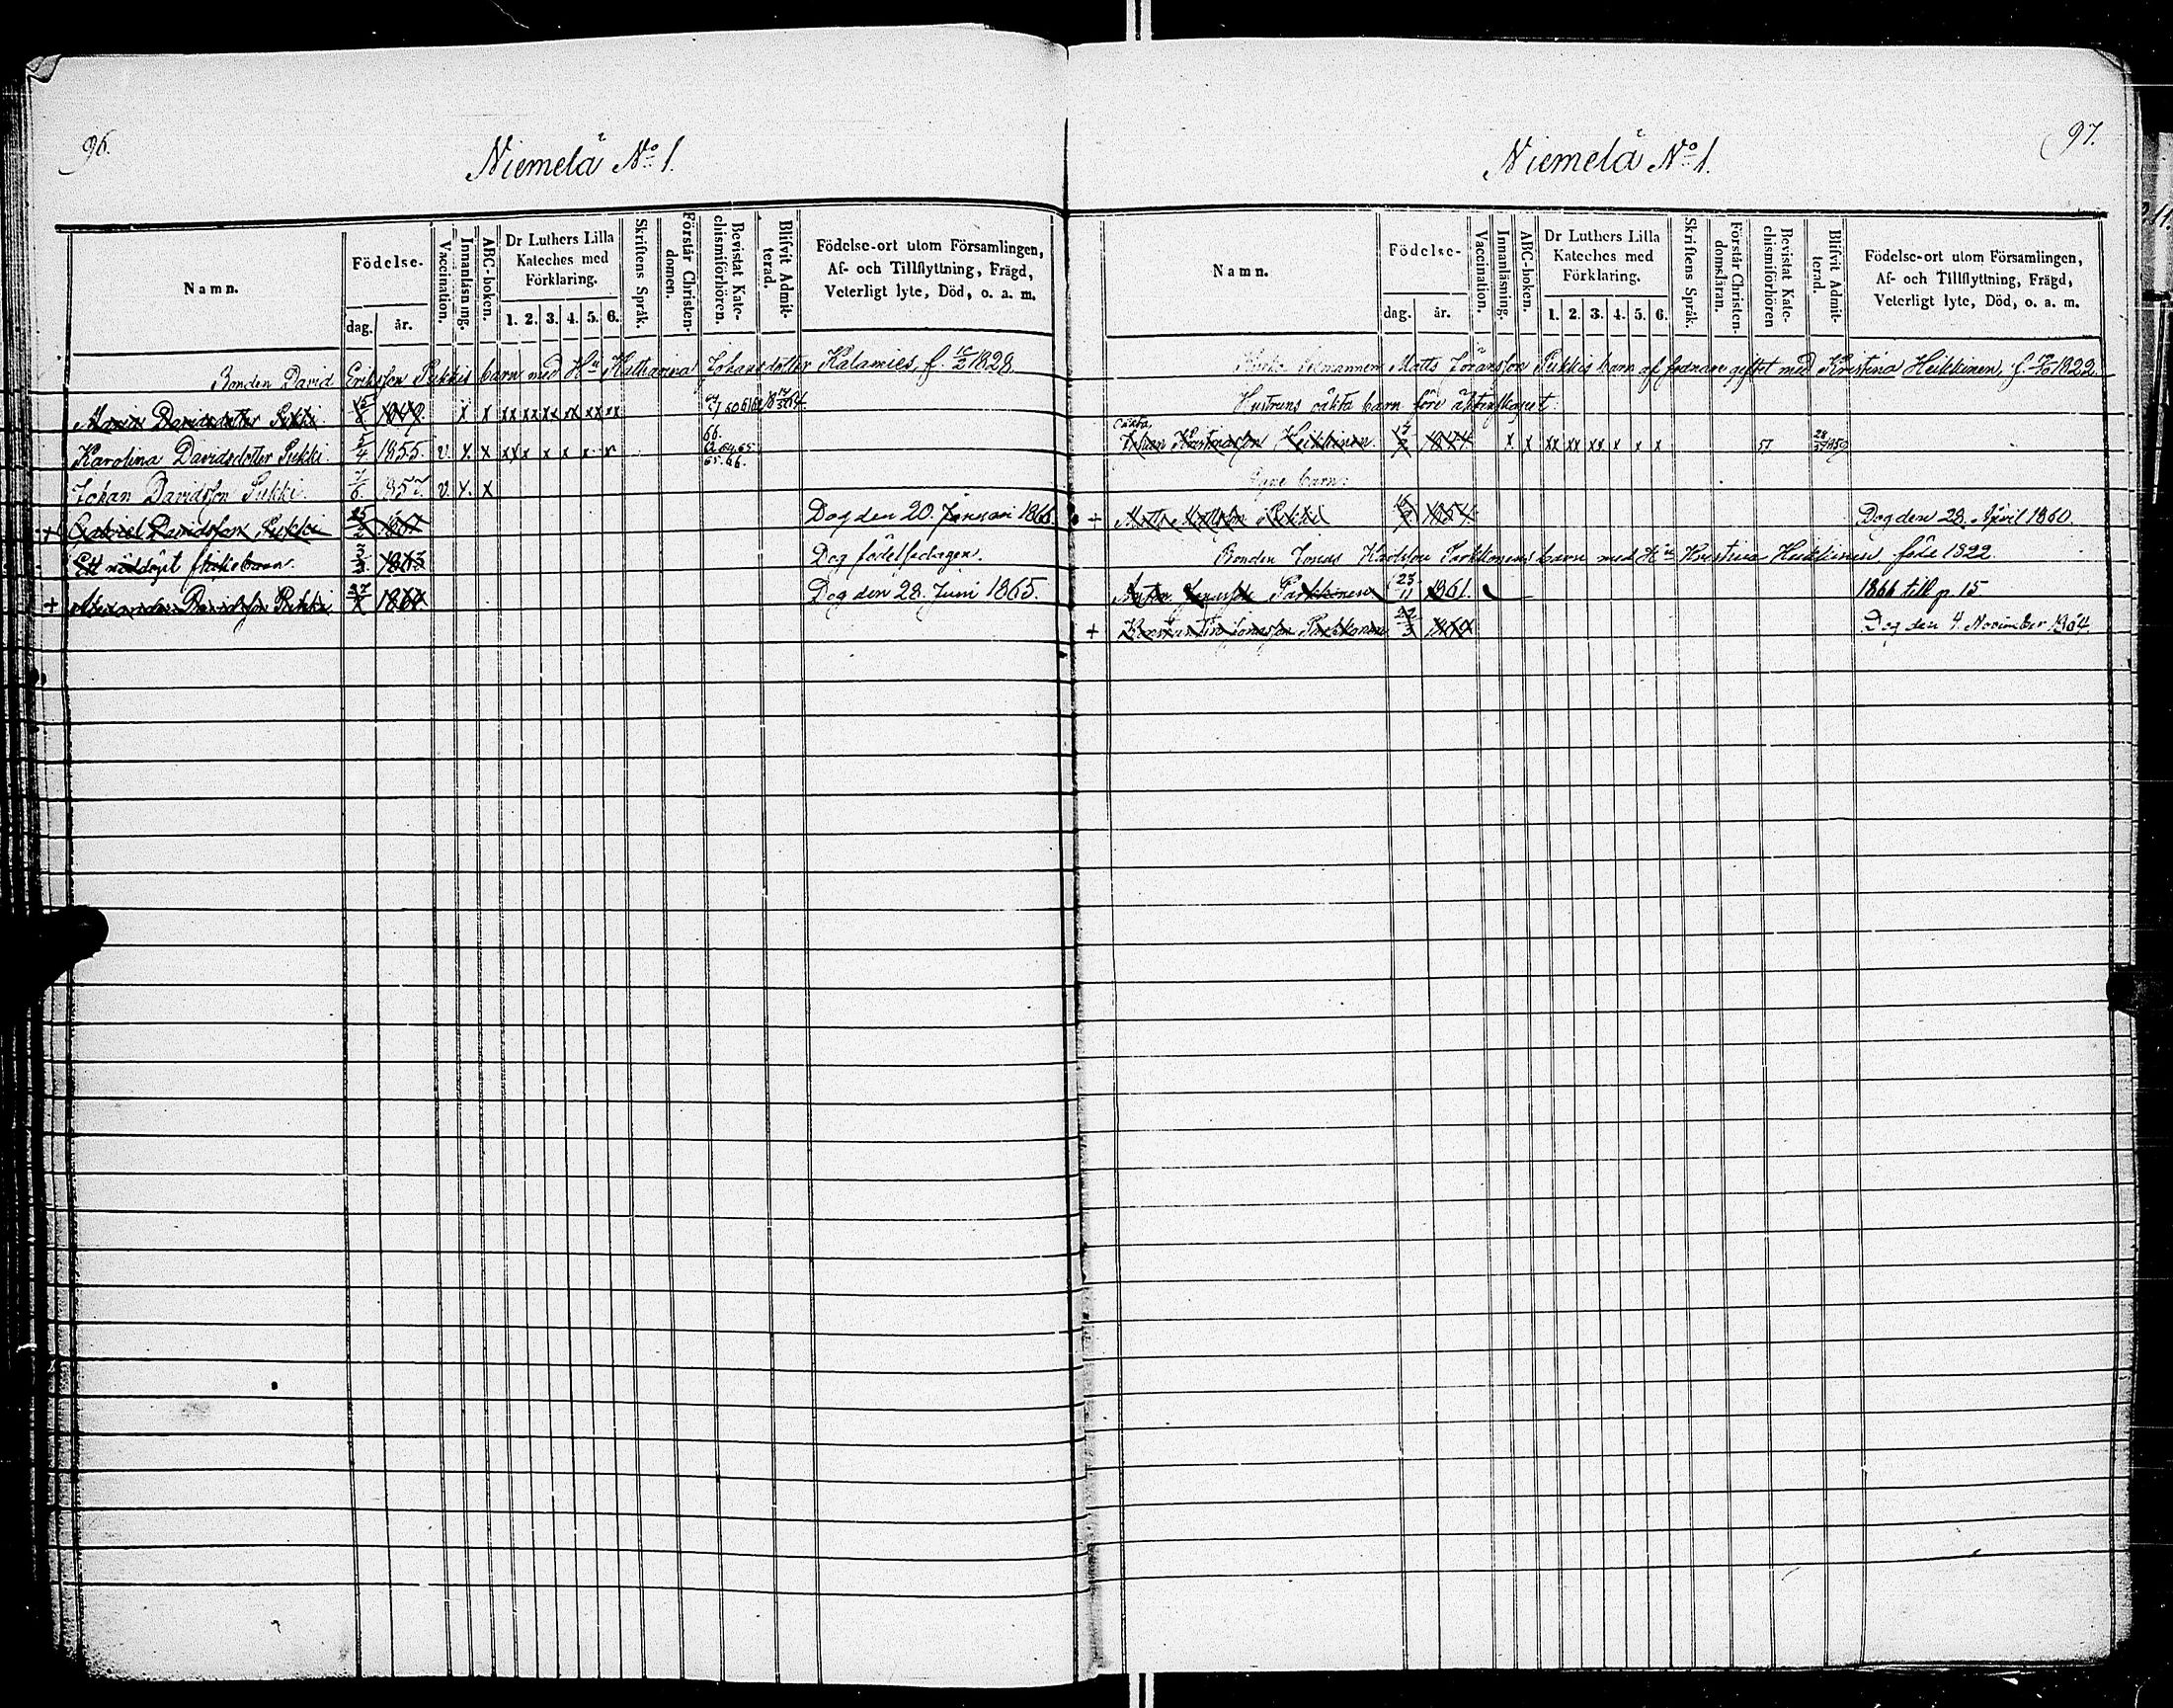 96.
Niemelä No 1.
Namn.
Födelse-
dag. år.
Vaccination.
Innanläsning.
ABC-boken.
Dr Luthers Lilla
Kateches med
Förklaring.
1. 2. 3. 4. 5. 6.
Skriftens Språk.
Förstår Christen-
domen.
Bevistat Kate-
chismiförhören.
Blifvit Admit-
terad.
Födelse-ort utom Församlingen,
Af- och Tillflyttning, Frägd,
Veterligt lyte, Död, o. a. m.
Bonden David Eriksson Pukkis barn med Hu Katharina Johansdotter Kalamies, f. 1828
Maria Davidsdotter x x xx xx xx xx xx xx
Karolina Davidsdotter 5/4 1855. v. x x xx x x x x x
Johan Davidsson 7/6 1857. v. x. x
+ Gabriel Davidsson Dog den 20. Januari
Ett nöddöpt flickebarn. 1863 Dog födelsedagen.
+ Alexander Davidsson 27 1864 Dog den 28. Juni 1865.
97.
Niemelä No 1.
Namn.
Födelse-
dag. år.
Vaccination.
Innanläsning.
ABC-boken.
Dr Luthers Lilla
Kateches med
Förklaring.
1. 2. 3. 4. 5. 6.
Skriftens Språk.
Förstår Christen-
domsläran.
Bevistat Kate-
chismiförhören
Blifvit Admit-
terad.
Födelse-ort utom Församlingen,
Af- och Tillflyttning, Frägd,
Veterligt lyte, Död, o. a. m.
Matts Göransson barn af giftet med Kristina Heikkinen, f. 1822.
Hustruns oäkta barn före äktenskapet:
oäkta
Kristinasson Heikkinen. x. x xx xx xx. x x x 57 1859
Egne barn:
+ Mattsson 1854. Dog den 28. April 1860.
Bonden Jonas Karlsson barn med Hu Kristina Heikkinen föde 1822.
Jonasson Parkkinen 23/11 1861. 1866 till p. 15
+ Konstantin Jonasson Dog den 4. November 1864.